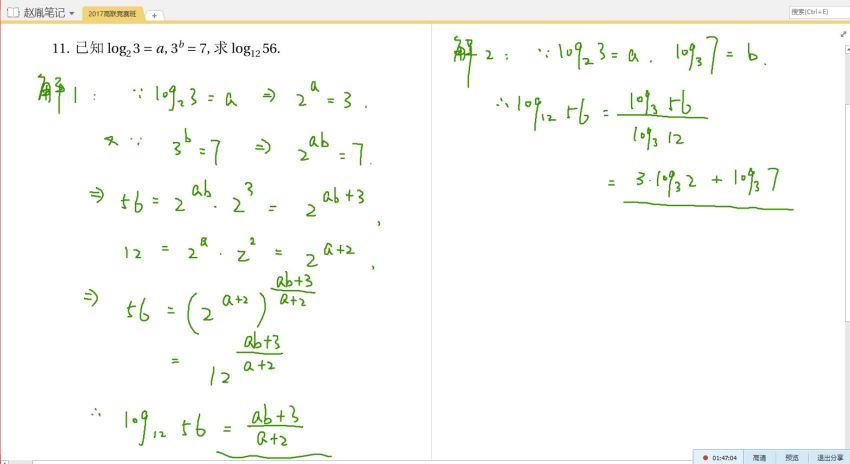 赵胤笔记
2017高联竞赛班
搜索(Ctrl+E)
11. 已知 log₂ 3 = a, 3ᵇ = 7, 求 log₁₂ 56.
解1: ∵ log₂ 3 = a ⇒ 2^a = 3.
又∵ 3^b = 7 ⇒ 2^{ab} = 7.
⇒ 56 = 2^{ab} · 2^3 = 2^{ab+3},
12 = 2^a · 2^2 = 2^{a+2},
⇒ 56 = (2^{a+2})^{\frac{ab+3}{a+2}}
= 12^{\frac{ab+3}{a+2}}
∴ log₁₂ 56 = \frac{ab+3}{a+2}
解2: ∵ log₂ 3 = a. log₃ 7 = b.
∴ log₁₂ 56 = \frac{log₃ 56}{log₃ 12}
= 3·log₃ 2 + log₃ 7
01:47:04 高清 预览 退出分享